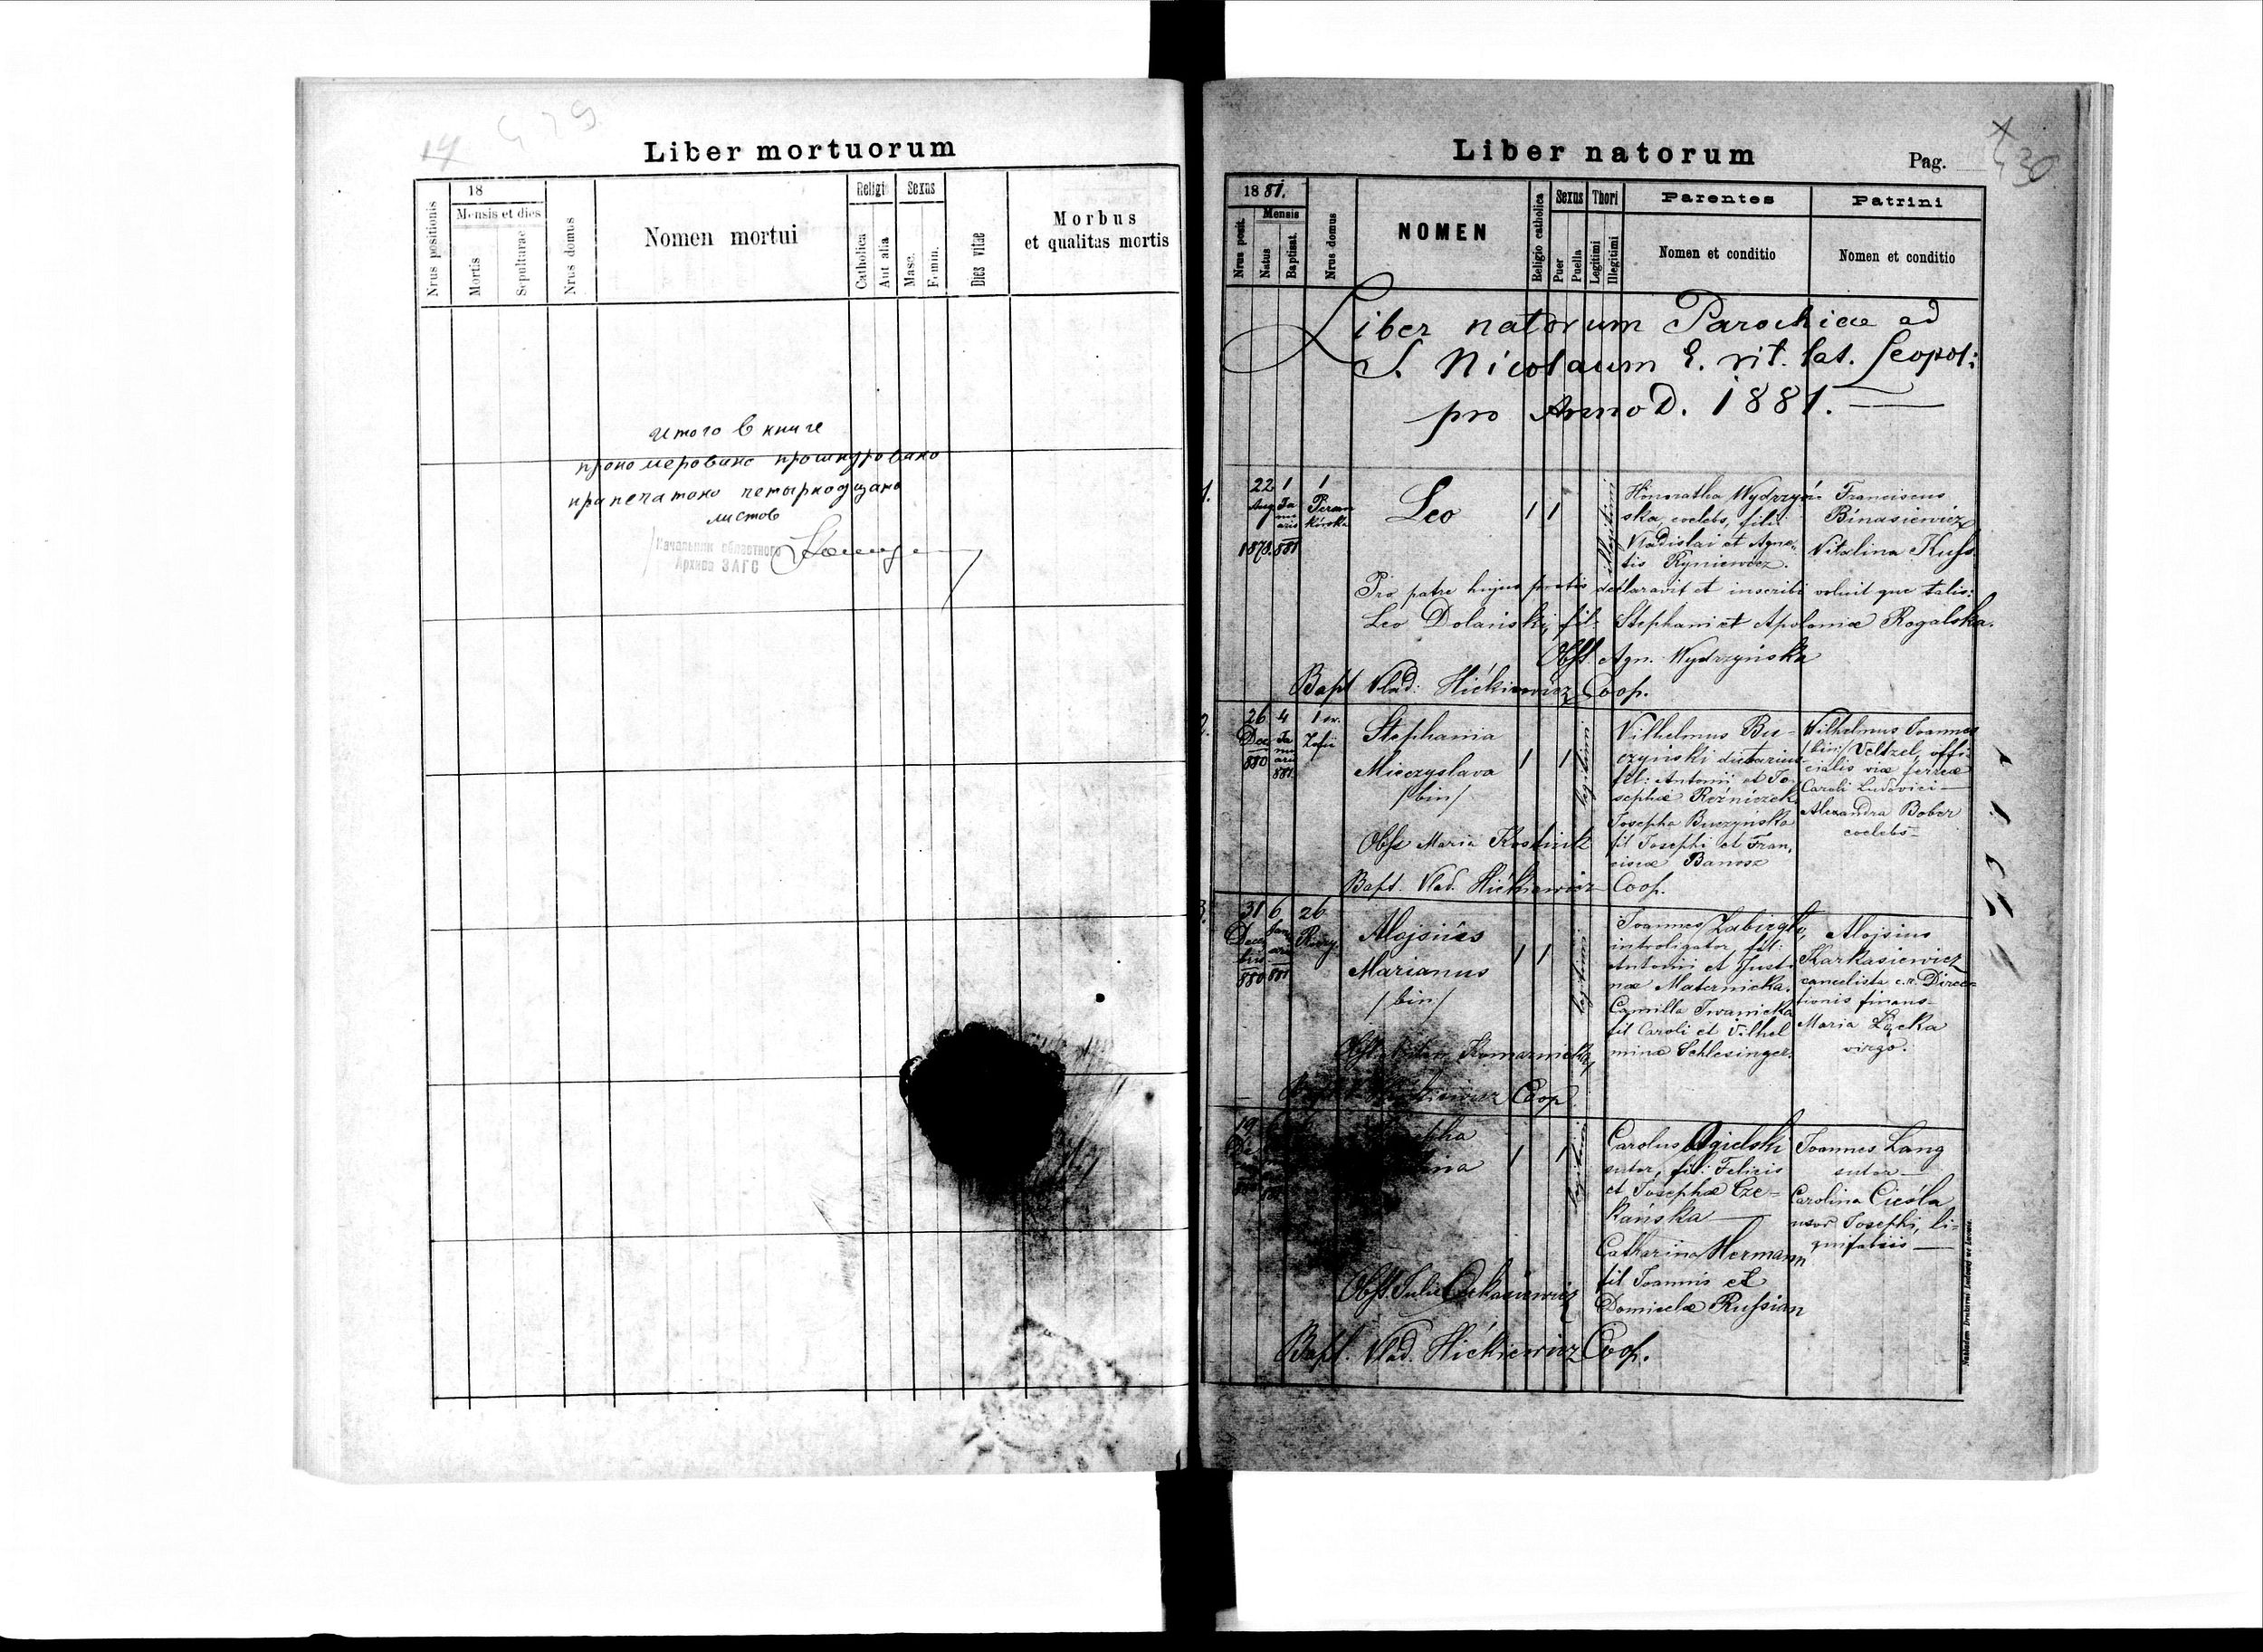 14
Liber mortuorum
Nrus positionis
18
Mensis et dies
Mortis
Sepulturae
Nrus domus
Nomen mortui
Religi
Catholica
Aut alia
Sexus
Masc.
Femin.
Dies vitae
Morbus
et qualitas mortis
итого в книге
прономеровано прошнуровано
листов
Начальник областного
Архива ЗАГС
Liber natorum
Pag.
30
1881.
Nrus posit.
Mensis
Natus
Baptisat.
Nrus domus
NOMEN
Religio catholica
Sexus
Puer
Puella
Thori
Legitimi
Illegitimi
Parentes
Nomen et conditio
Patrini
Nomen et conditio
Liber natorum Parochiae ad
S. Nicolaum E. rit. lat. Leopol:
pro Anno D. 1881.
1.
22 Aug 1878.
1 Januaris 881
1
Leo
1 1
illegitimi
Honoratha Wydrzyń-
ska, coelebs, filia
Vladislai et Agne-
tis Ryniewicz.
Franciscus
Binasiewicz
Vitalina Kuss.
Pro patre hujus prolis declaravit et inscribi voluit que talis:
Leo Dolański, fil. Stephani et Apoloniae Rogalska.
Obst. Agn. Wydrzyńska
Bapt Vlad: Hićkiewicz Coop.
2.
26 Dec 880
4 Januari 881.
1 św. Zofii
Stephania
Mieczyslava
/bin/
1 1
legitimi
Vilhelmus Bu-
czyński dietarius
fil: Antonii et Jo-
sephae Rożniczek.
Josepha Buczyńska
fil Josephi et Fran,
ciscae Banosz
Wilhelmus Joannes
/bin/ Veltzel, offi-
cialis viae ferreae
Caroli Ludovici
Alexandra Bober
coelebs
Obst Maria
Bapt. Vlad. Hićkiewicz Coop.
3.
31 Decembris 880
6 Januari 881
26
Alojsius
Marianus
/bin/
1 1
legitimi
Joannes
introligator, fil:
Antonii et Justi-
nae Maternicka.
Camilla Iwanicka
fil Caroli et Vilhel
minae Schlesinger.
Alojsius
Karkasiewicz
cancelista c.r. Direc-
tionis finans
Maria Łącka
virgo.
Komarnicka
Coop
19
1 1
legitimi
Carolus Ogielski
sutor, fil: Felicis
et Josephae Cze-
kańska
Catharina Hermann
fil Joannis et
Domicelae Russian
Joannes Lang
sutor
Carolina Cieśla
uxor Josephi, li-
gnifabris
Obst. Julia
Bapt. Vlad. Hićkiewicz Coop.
Nakładem Drukarni Ludowej we Lwowie.